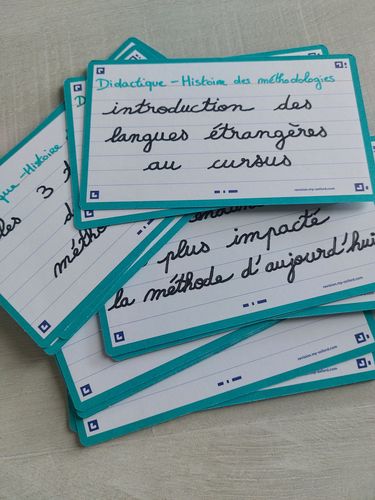 Didactique - Histoire des méthodologies
introduction des
langues étrangères
au cursus
revision.my-oxford.com
D
que - Histoire
les 3
d
métho
plus impacté
la méthode d'aujourd'hui
revision.my-oxford.com
revision.my-oxford.com